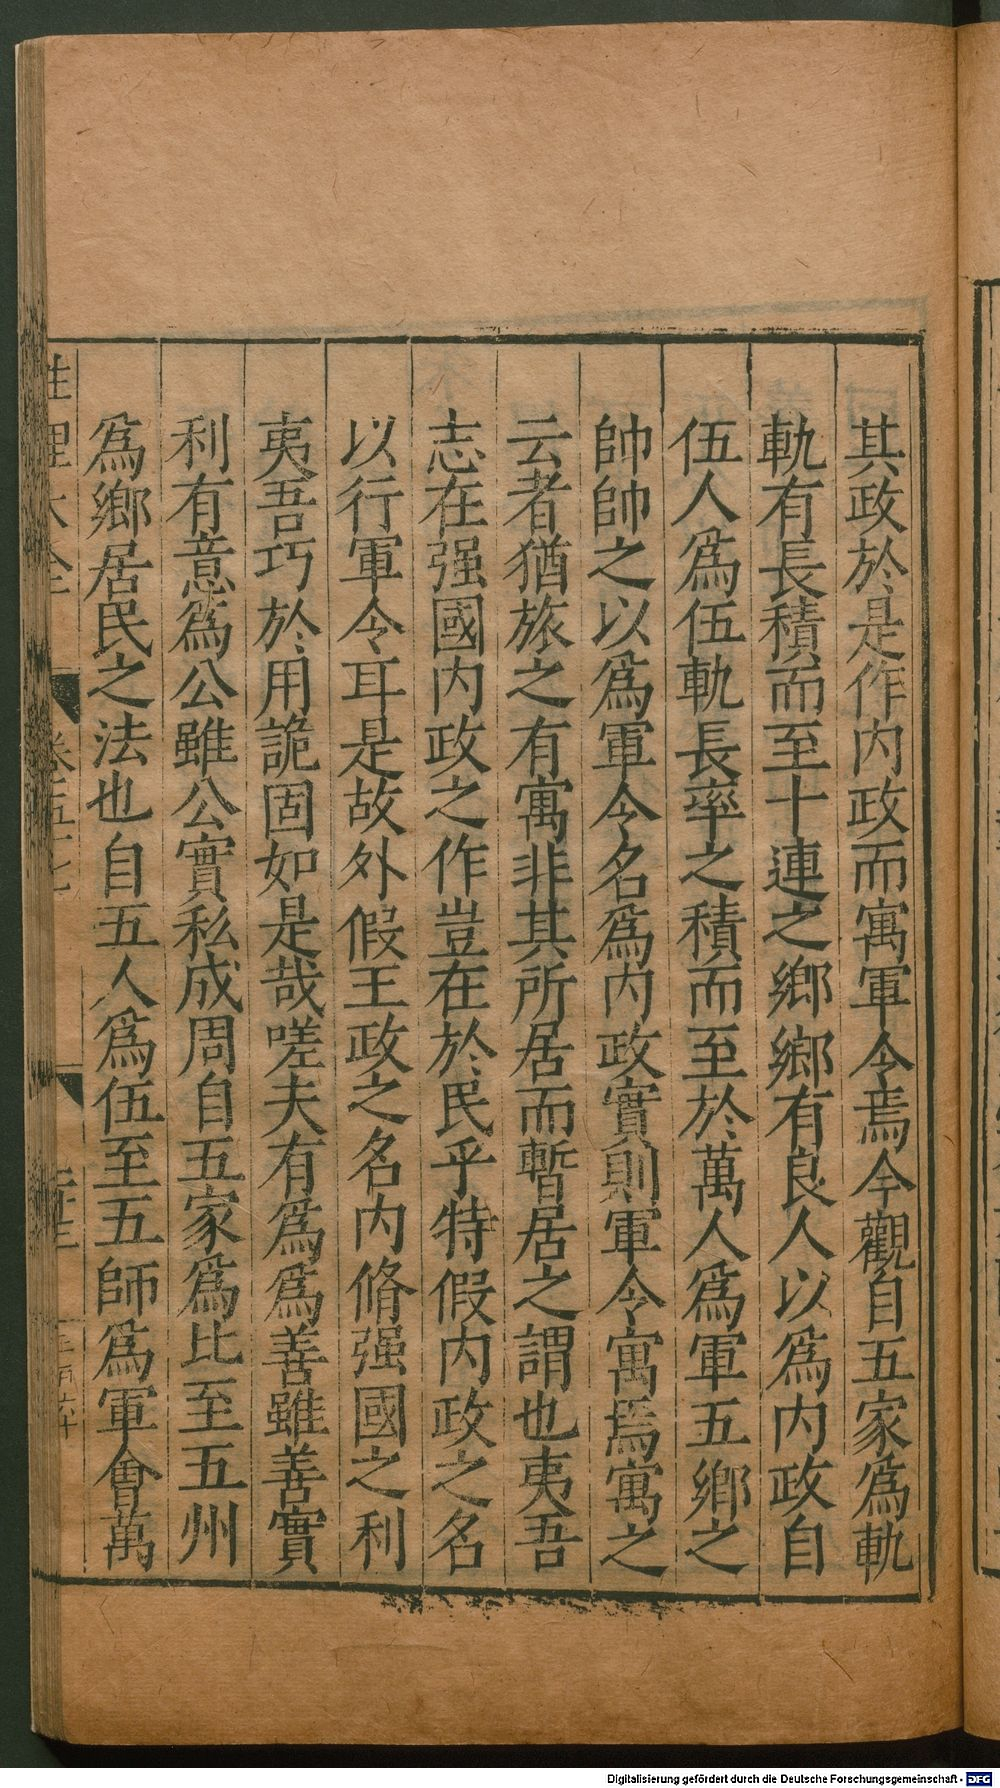 其政於是作内政而寓軍令焉今觀自五家爲軌
軌有長積而至十連之鄉鄉有良人以爲内政自
伍人爲伍軌長率之積而至於萬人爲軍五鄉之
帥帥之以爲軍令名爲内政實則軍令寓焉寓之
云者猶旅之有寓非其所居而暫居之謂也夷吾
志在强國内政之作豈在於民乎特假内政之名
以行軍令耳是故外假王政之名内脩强國之利
夷吾巧於用詭固如是哉嗟夫有爲爲善雖善實
利有意爲公雖公實私成周自五家爲比至五州
爲鄉居民之法也自五人爲伍至五師爲軍會萬
性理大全
卷五十七
Digitalisierung gefördert durch die Deutsche Forschungsgemeinschaft - DFG